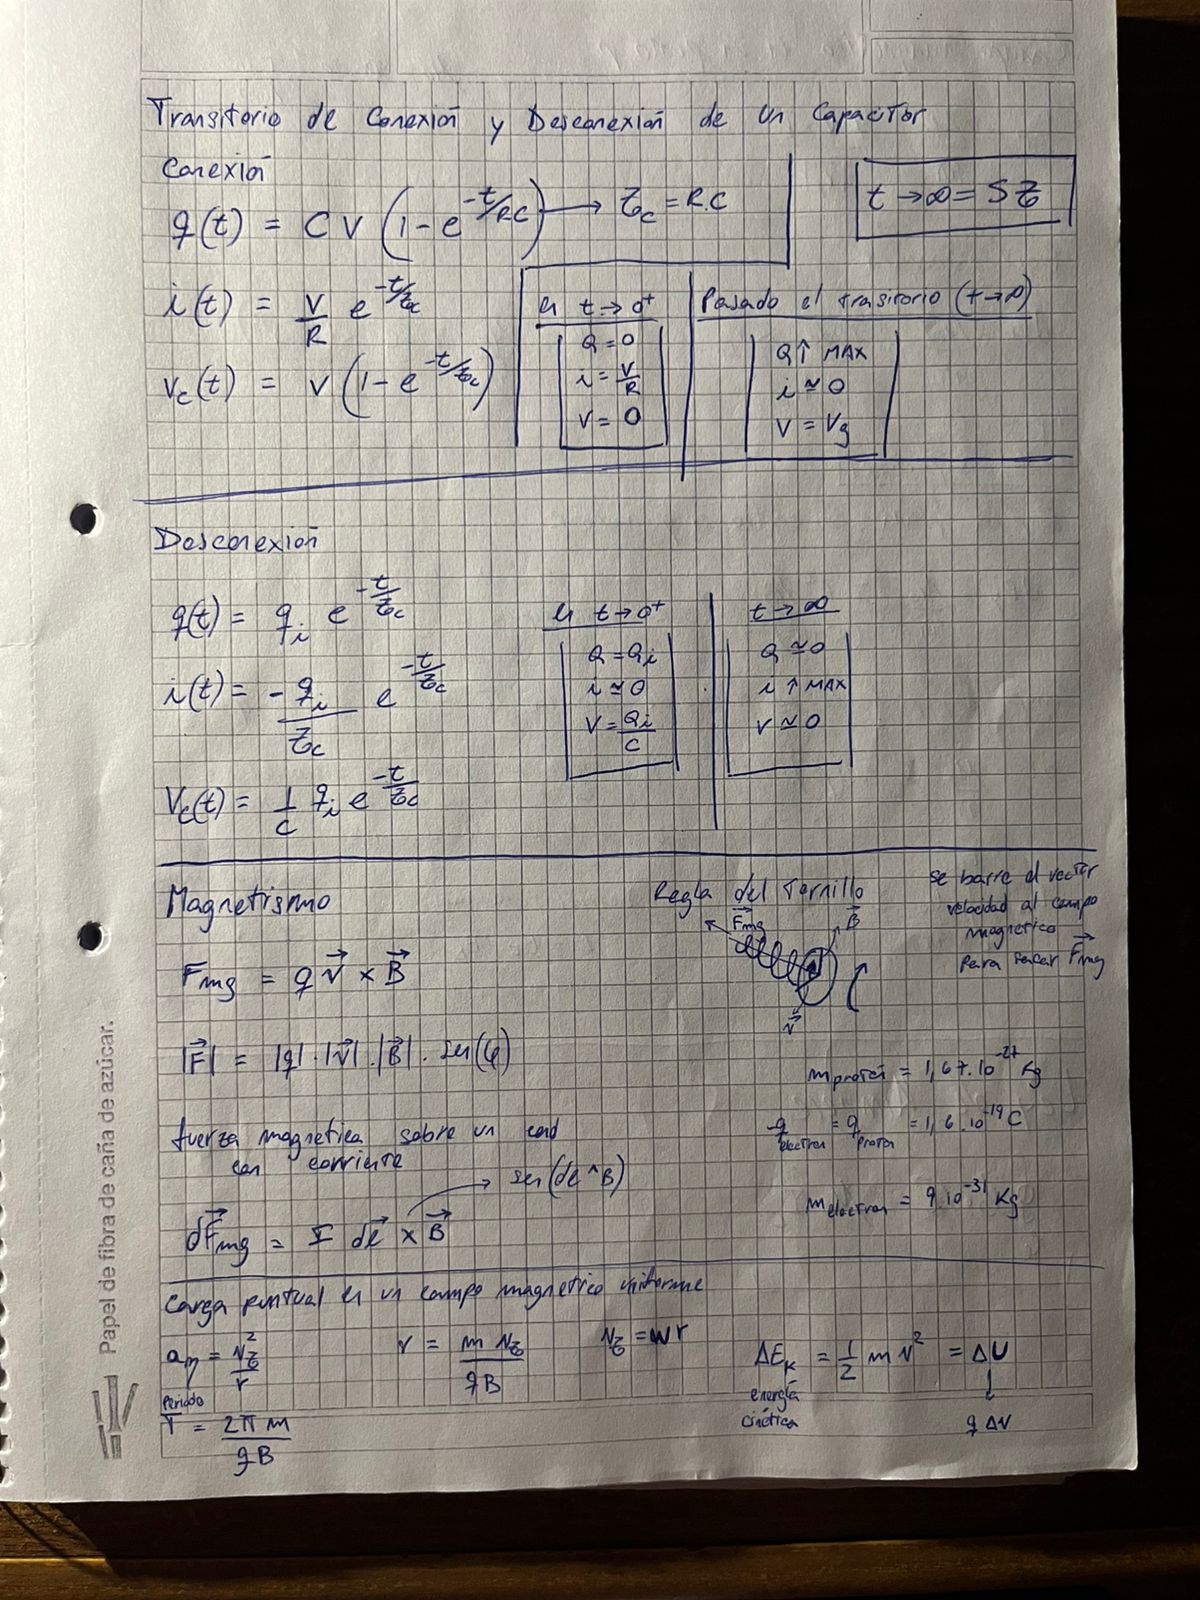 Transitorio de Conexión y Desconexión de un Capacitor
Conexión
q(t) = C V (1 - e^{-t/RC}) → τc = R.C
t → ∞ = 5τ
i(t) = V/R e^{-t/τc}
Vc(t) = V (1 - e^{-t/τc})
En t → 0⁺
Q = 0
i = V/R
V = 0
Pasado el trasitorio (t → ∞)
Q ↑ MAX
i ≃ 0
V = Vg
Desconexión
q(t) = qi e^{-t/τc}
i(t) = -qi/τc e^{-t/τc}
Vc(t) = 1/C qi e^{-t/τc}
En t → 0⁺
Q = Qi
i ≃ 0
V = Qi/C
t → ∞
Q ≃ 0
i ↑ MAX
V ≃ 0
Magnetismo
Fmg = q v⃗ × B⃗
|F⃗| = |q| . |v⃗| . |B⃗| . sen(φ)
Regla del Tornillo
F⃗mg
B⃗
v⃗
se barre el vector
velocidad al campo
magnetico
para sacar F⃗mg
mprotón = 1,67.10⁻²⁷ Kg
-qelectron = qproton = 1,6.10⁻¹⁹ C
melectron = 9.10⁻³¹ Kg
fuerza magnetica sobre un cond
con corriente
sen(dl^B)
dF⃗mg = I dl⃗ × B⃗
Carga puntual en un campo magnetico uniforme
r = m vτ/qB
vτ = wr
ΔEk = 1/2 m v² = ΔU
energía
cinética
q ΔV
Periodo
T = 2π m/qB
Papel de fibra de caña de azúcar.